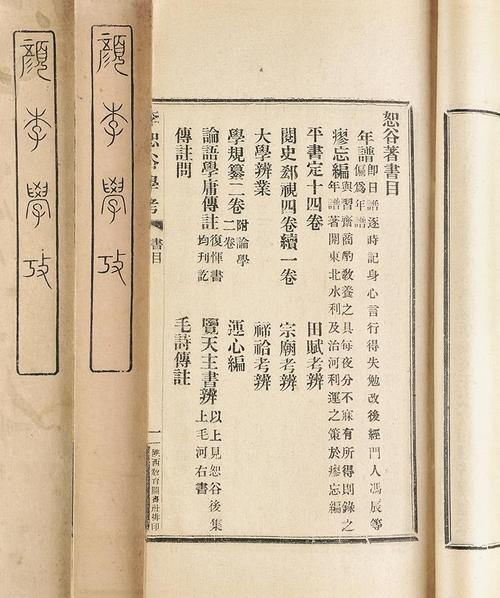 顏李學攷
顏李學攷
恕谷著書目
年譜 即日譜逐時記身心言行得失勉改後經門人馮辰等
編為年譜
瘳忘編 與習齋商酌教養之具每夜分不寐有所得則錄之
年譜著開東北水利及治河利運之策於瘳忘編
平書定十四卷 田賦考辨
閱史郄視四卷續一卷 宗廟考辨
大學辨業 禘祫考辨
學規纂二卷 附論學二卷 運心編
論語學庸傳註 復惲書均刊訖 覽天主書辨 以上見恕谷後集上毛河右書
傳註問 毛詩傳註
李恕谷學考 書目 一 陝西教育圖書社排印